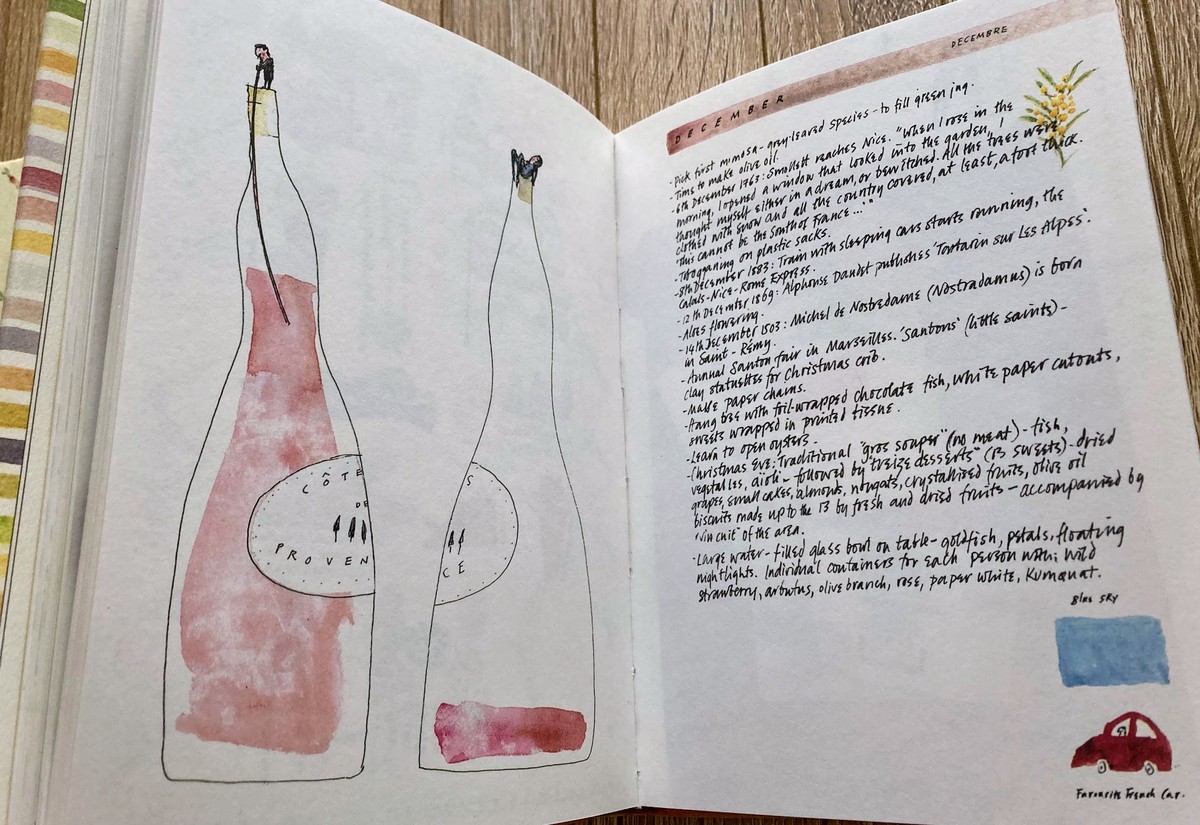 CÔTE
DE
PROVEN
S
CE
DECEMBER
DECEMBRE
- Pick first mimosa - grey-leaved species - to fill green jug.
- Time to make olive oil.
- 6th December 1763: Smollett reaches Nice. "When I rose in the
morning, I opened a window that looked into the garden, I
thought myself either in a dream, or bewitched. All the trees were
clothed with snow and all the country covered, at least, a foot thick.
'This cannot be the South of France...'"
- Tobogganing on plastic sacks.
- 8th December 1883: Train with sleeping cars starts running, the
Calais-Nice-Rome Express.
- 12th December 1869: Alphonse Daudet publishes 'Tartarin sur Les Alpes'.
- Aloes flowering.
- 14th December 1503: Michel de Nostredame (Nostradamus) is born
in Saint-Rémy.
- Annual Santon fair in Marseilles. 'Santons' (little saints) -
clay statuettes for Christmas crib.
- Make paper chains.
- Hang tree with foil-wrapped chocolate fish, white paper cutouts,
sweets wrapped in printed tissue.
- Learn to open oysters.
- Christmas Eve: Traditional "gros souper" (no meat) - fish,
vegetables, aïoli - followed by "treize desserts" (13 sweets) - dried
grapes, small cakes, almonds, nougats, crystallised fruits, olive oil
biscuits made up to the 13 by fresh and dried fruits - accompanied by
"vin cuit" of the area.
- Large water-filled glass bowl on table - goldfish, petals, floating
nightlights. Individual containers for each person with: wild
strawberry, arbutus, olive branch, rose, paper white, Kumquat.
Blue Sky
Favourite French Car.